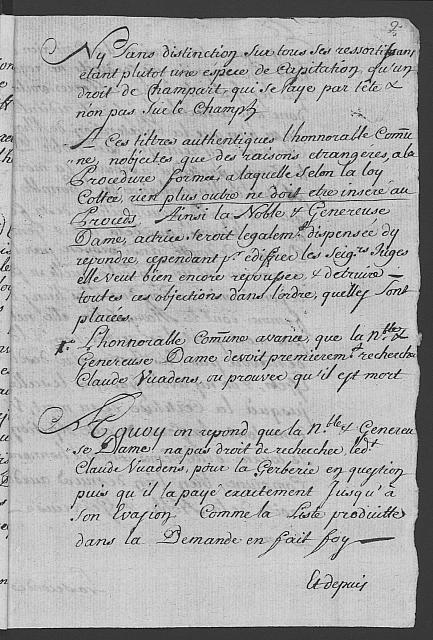 9.
Ny sans distinction sur tous ses ressortissans
etant plutot une espece de Capitation, qu'un
droit de Champart, qui se paye par tête &
non pas sur le Champ
A Ces titres authentiques l'honnorable Comu-
ne, n'objecte que des raisons etrangeres, a la
Procedure formée, a laquelle selon la loy
Cottée, rien plus outre ne doit etre inseré au
Proceds. Ainsi la Noble, & Genereuse
Dame, actrice seroit legalemt dispensée dy
repondre, cependant pr edifier les Seigrs Juges
elle veut bien encore repousser, & detruire
toutes ces objections dans l'ordre, quelles sont
placées.
1o L'honnorable Comune avance, que la Nble &
Genereuse Dame devoit premieremt rechercher
Claude Vuadens, ou prouver qu'il est mort
A quoy on repond que la Nble & Genereu-
se Dame na pas droit de rechercher ledt
Claude Vuadens, pour la Gerberie en question
puis qu'il la payé exaitement Jusqu'à
son Evasion Comme la Liste produitte
dans la Demande en fait foy
Et depuis